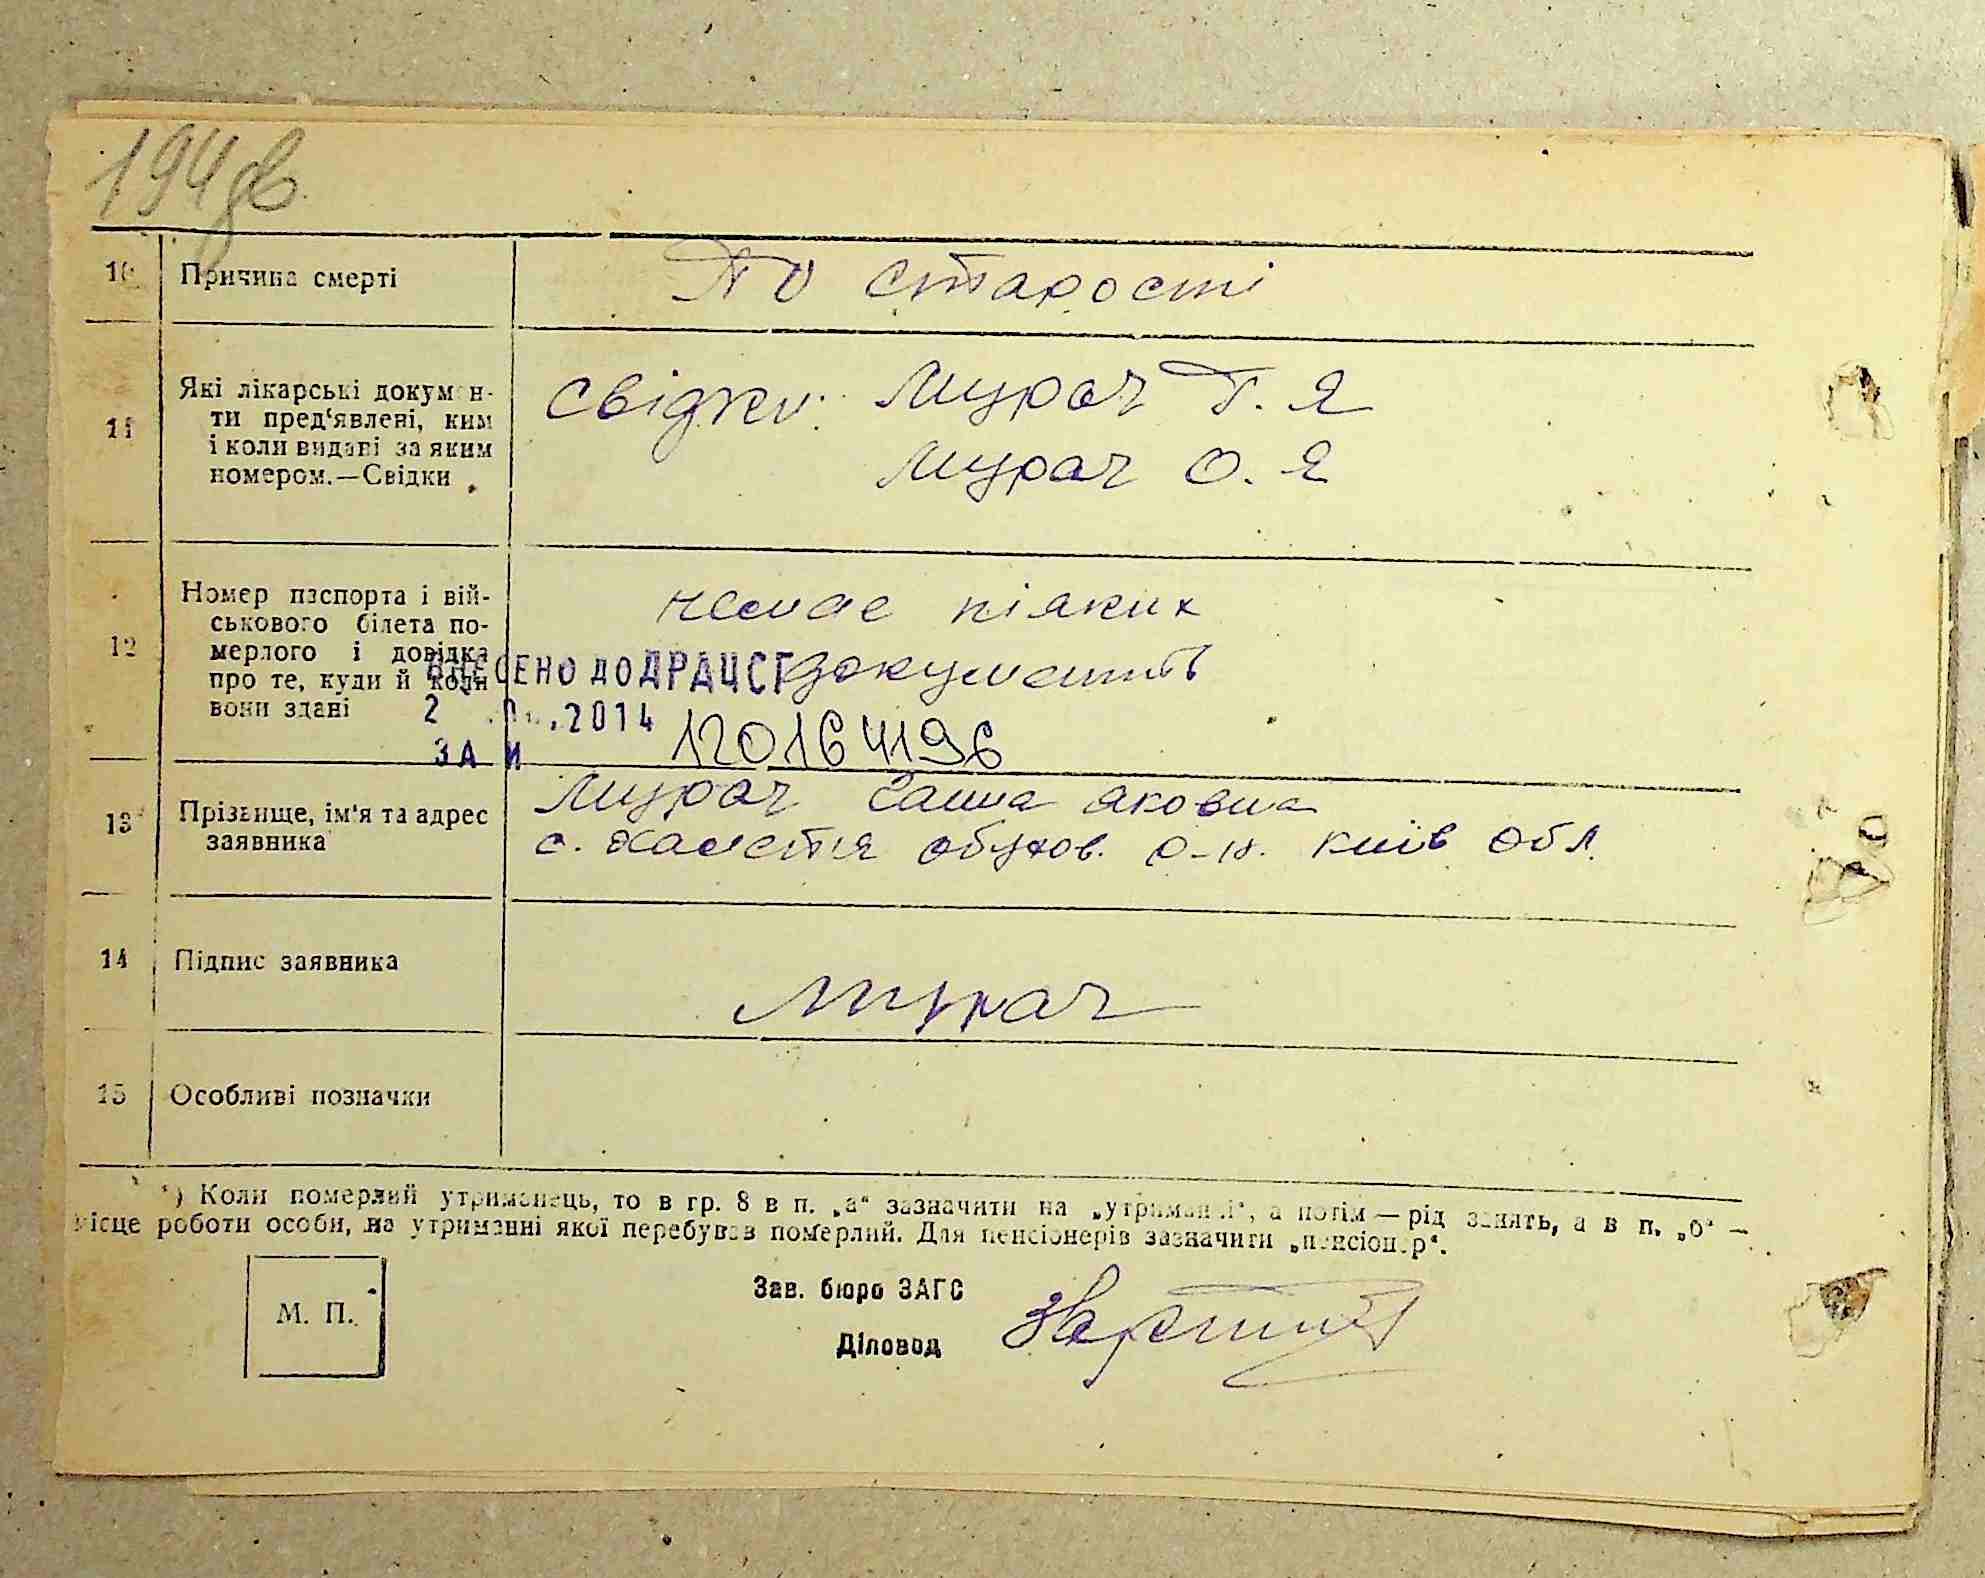 194 зв.
10 Причина смерті По старості
11 Які лікарські докумен-
ти пред‘явлені, ким
і коли видані за яким
номером.—Свідки
Свідки: Мурач Г. Я
Мурач О. Я
12 Номер паспорта і вій-
ськового білета по-
мерлого і довідка
про те, куди й коли
вони здані
немає ніяких
документів
ВНЕСЕНО ДО ДРАЦСГ
2 2014
ЗА И 120164196
13 Прізвище, ім'я та адрес
заявника
Мурач Ганна Яковна
с. Халеп'я Обухов. р-н. Київ Обл.
14 Підпис заявника Мурач
15 Особливі позначки
*) Коли померлий утриманець, то в гр. 8 в п. „а“ зазначити на „утриманні“, а потім — рід занять, а в п. „б“ —
місце роботи особи, на утриманні якої перебував померлий. Для пенсіонерів зазначити „пенсіонер“.
М. П.
Зав. бюро ЗАГС
Діловод